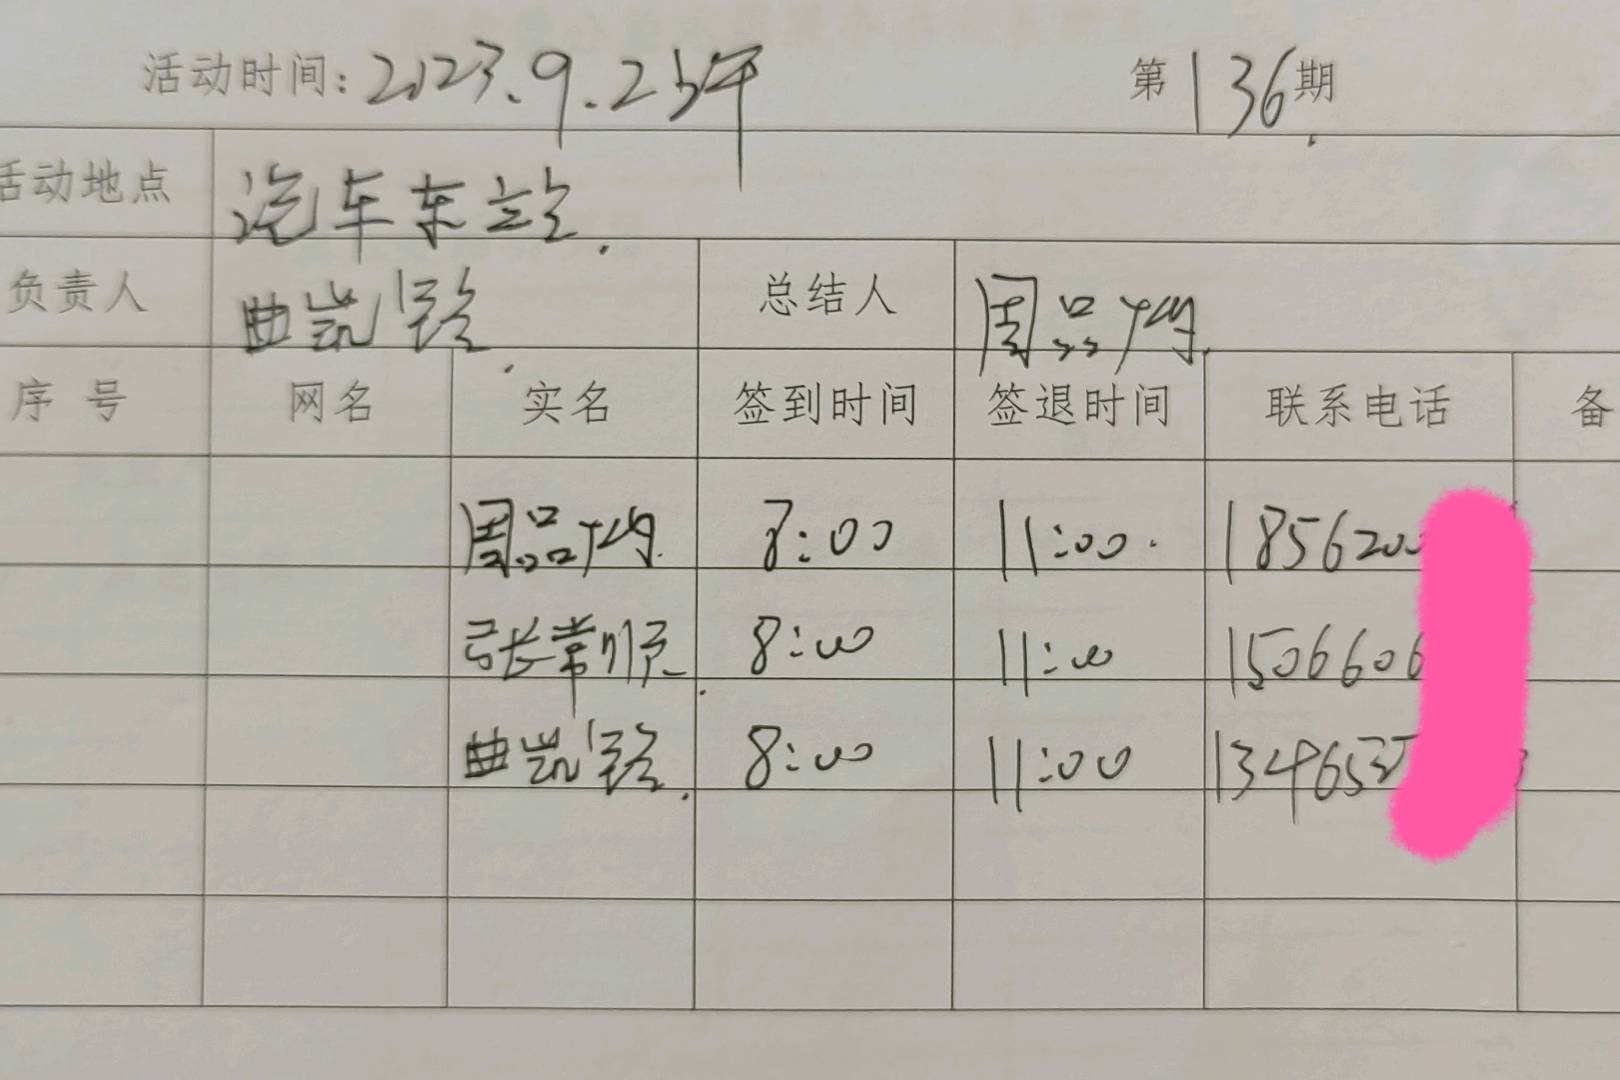 活动时间: 2023.9.25年 第136期
活动地点 汽车东站.
负责人 曲凯铃. 总结人 周品均.
序号 网名 实名 签到时间 签退时间 联系电话 备
周品均. 8:00 11:00. 1856200
张常顺. 8:00 11:00 1506606
曲凯铃. 8:00 11:00 134653